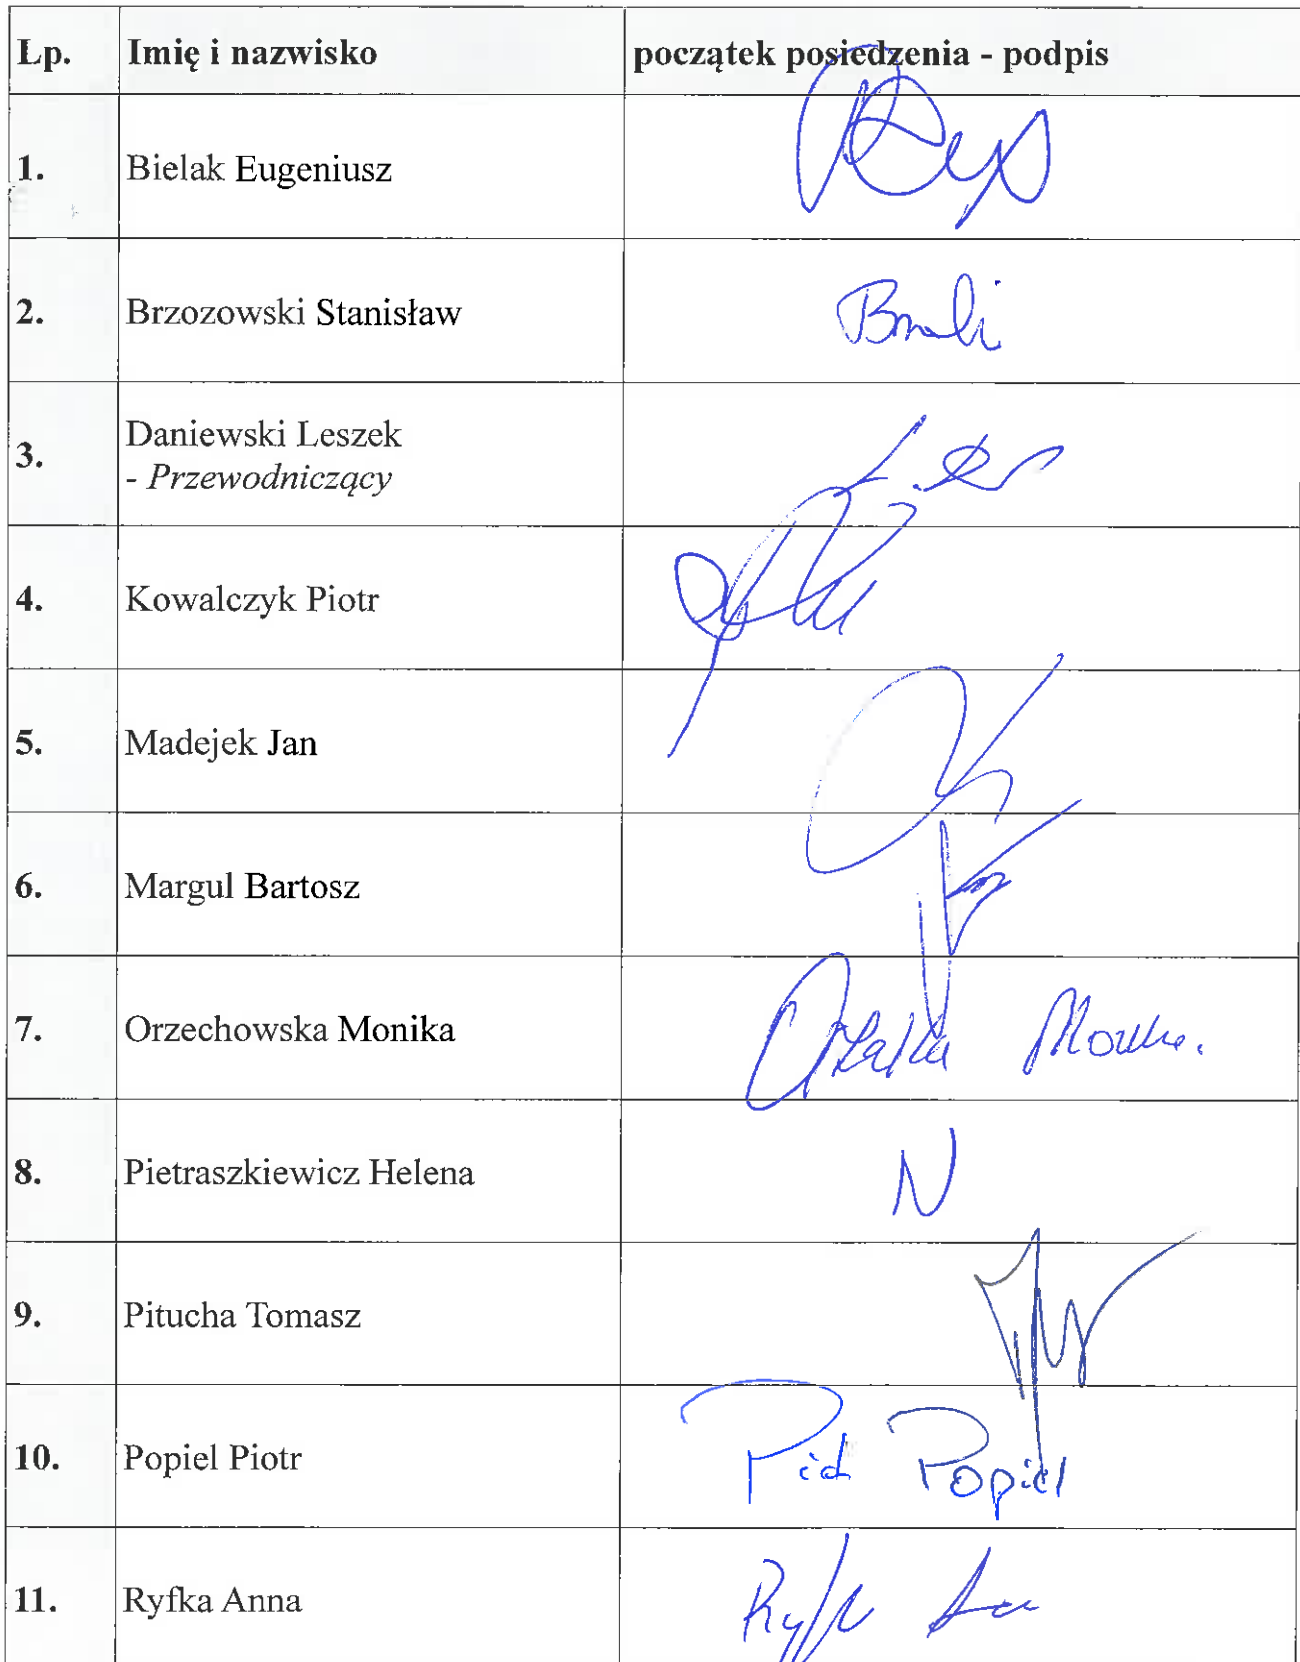 Lp. Imię i nazwisko początek posiedzenia - podpis
1. Bielak Eugeniusz
2. Brzozowski Stanisław
3. Daniewski Leszek
- Przewodniczący
4. Kowalczyk Piotr
5. Madejek Jan
6. Margul Bartosz
7. Orzechowska Monika
8. Pietraszkiewicz Helena N
9. Pitucha Tomasz
10. Popiel Piotr Popiel
11. Ryfka Anna